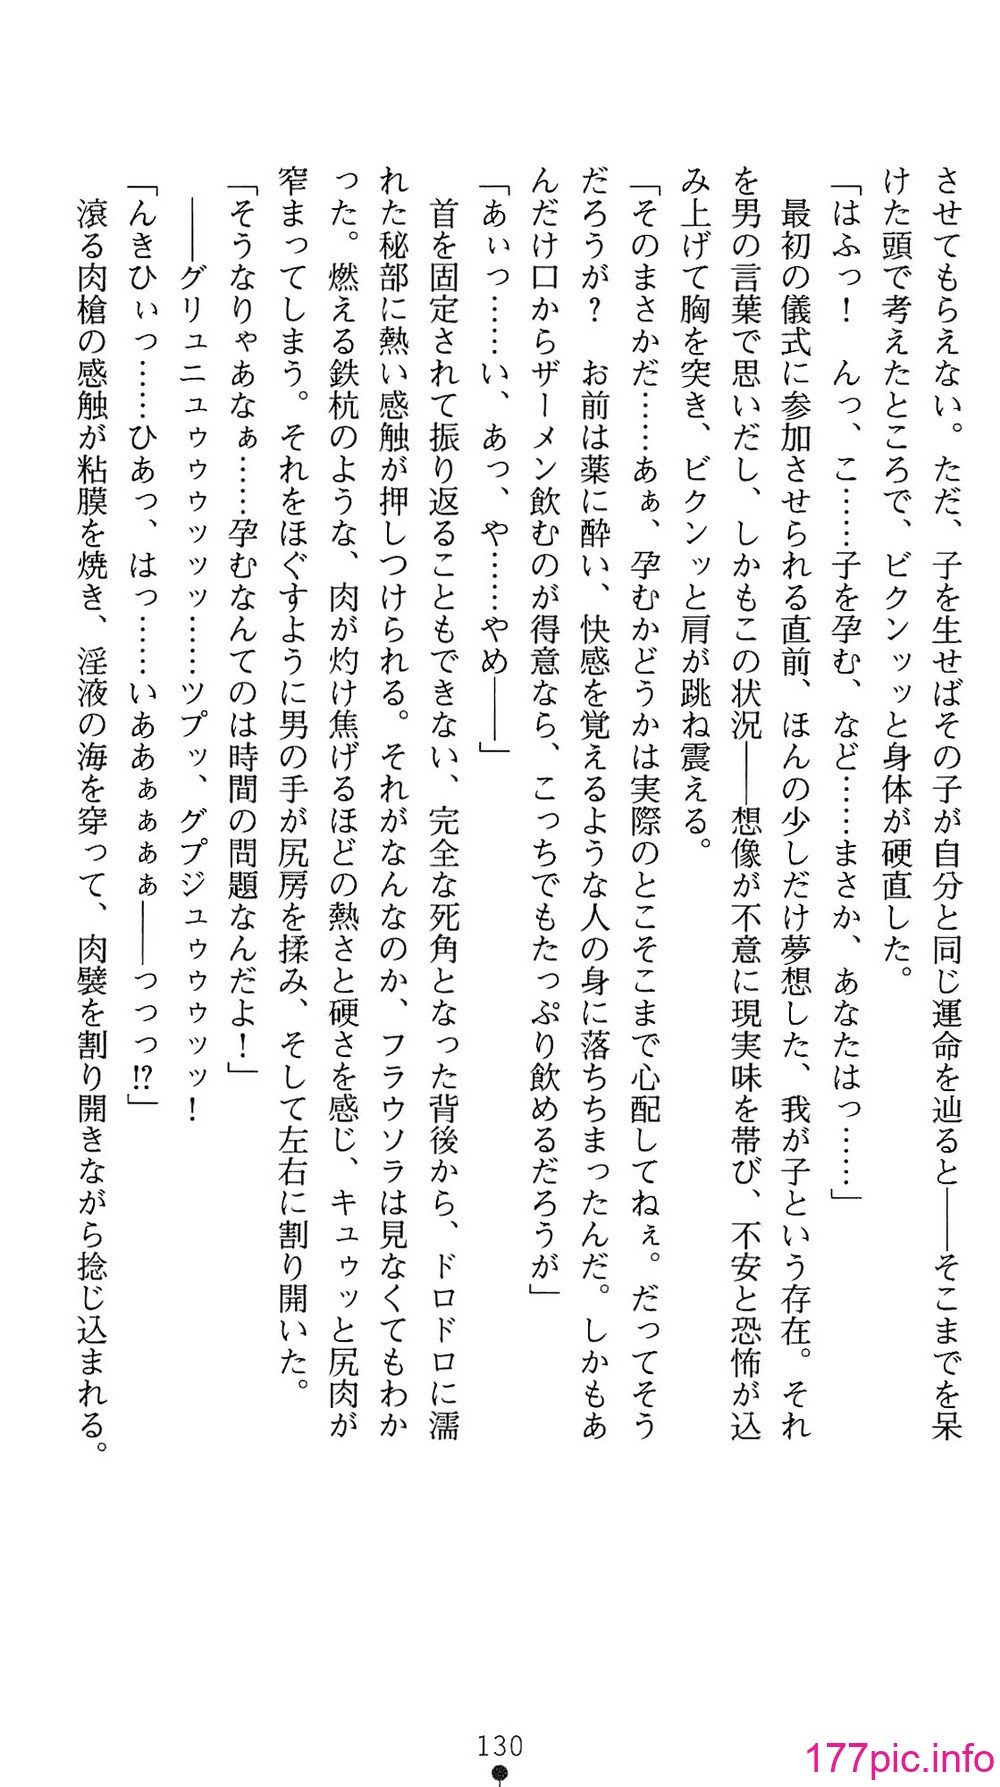 させてもらえない。ただ、子を生せばその子が自分と同じ運命を辿ると――そこまでを呆
けた頭で考えたところで、ビクンッッと身体が硬直した。
「はふっ！　んっ、こ……子を孕む、など……まさか、あなたはっ……」
　最初の儀式に参加させられる直前、ほんの少しだけ夢想した、我が子という存在。それ
を男の言葉で思いだし、しかもこの状況――想像が不意に現実味を帯び、不安と恐怖が込
み上げて胸を突き、ビクンッと肩が跳ね震える。
「そのまさかだ……あぁ、孕むかどうかは実際のとこそこまで心配してねぇ。だってそう
だろうが？　お前は薬に酔い、快感を覚えるような人の身に落ちちまったんだ。しかもあ
んだけ口からザーメン飲むのが得意なら、こっちでもたっぷり飲めるだろうが」
「あぃっ……い、あっ、や……やめ――」
　首を固定されて振り返ることもできない、完全な死角となった背後から、ドロドロに濡
れた秘部に熱い感触が押しつけられる。それがなんなのか、フラウソラは見なくてもわか
った。燃える鉄杭のような、肉が灼け焦げるほどの熱さと硬さを感じ、キュゥッと尻肉が
窄まってしまう。それをほぐすように男の手が尻房を揉み、そして左右に割り開いた。
「そうなりゃあなぁ……孕むなんてのは時間の問題なんだよ！」
　――グリュニュゥゥゥッッッ……ツプッ、グプジュゥゥゥッッ！
「んきひぃっ……ひあっ、はっ……いああぁぁぁぁ――っっっ!?」
　滾る肉槍の感触が粘膜を焼き、淫液の海を穿って、肉襞を割り開きながら捻じ込まれる。
130
177pic.info